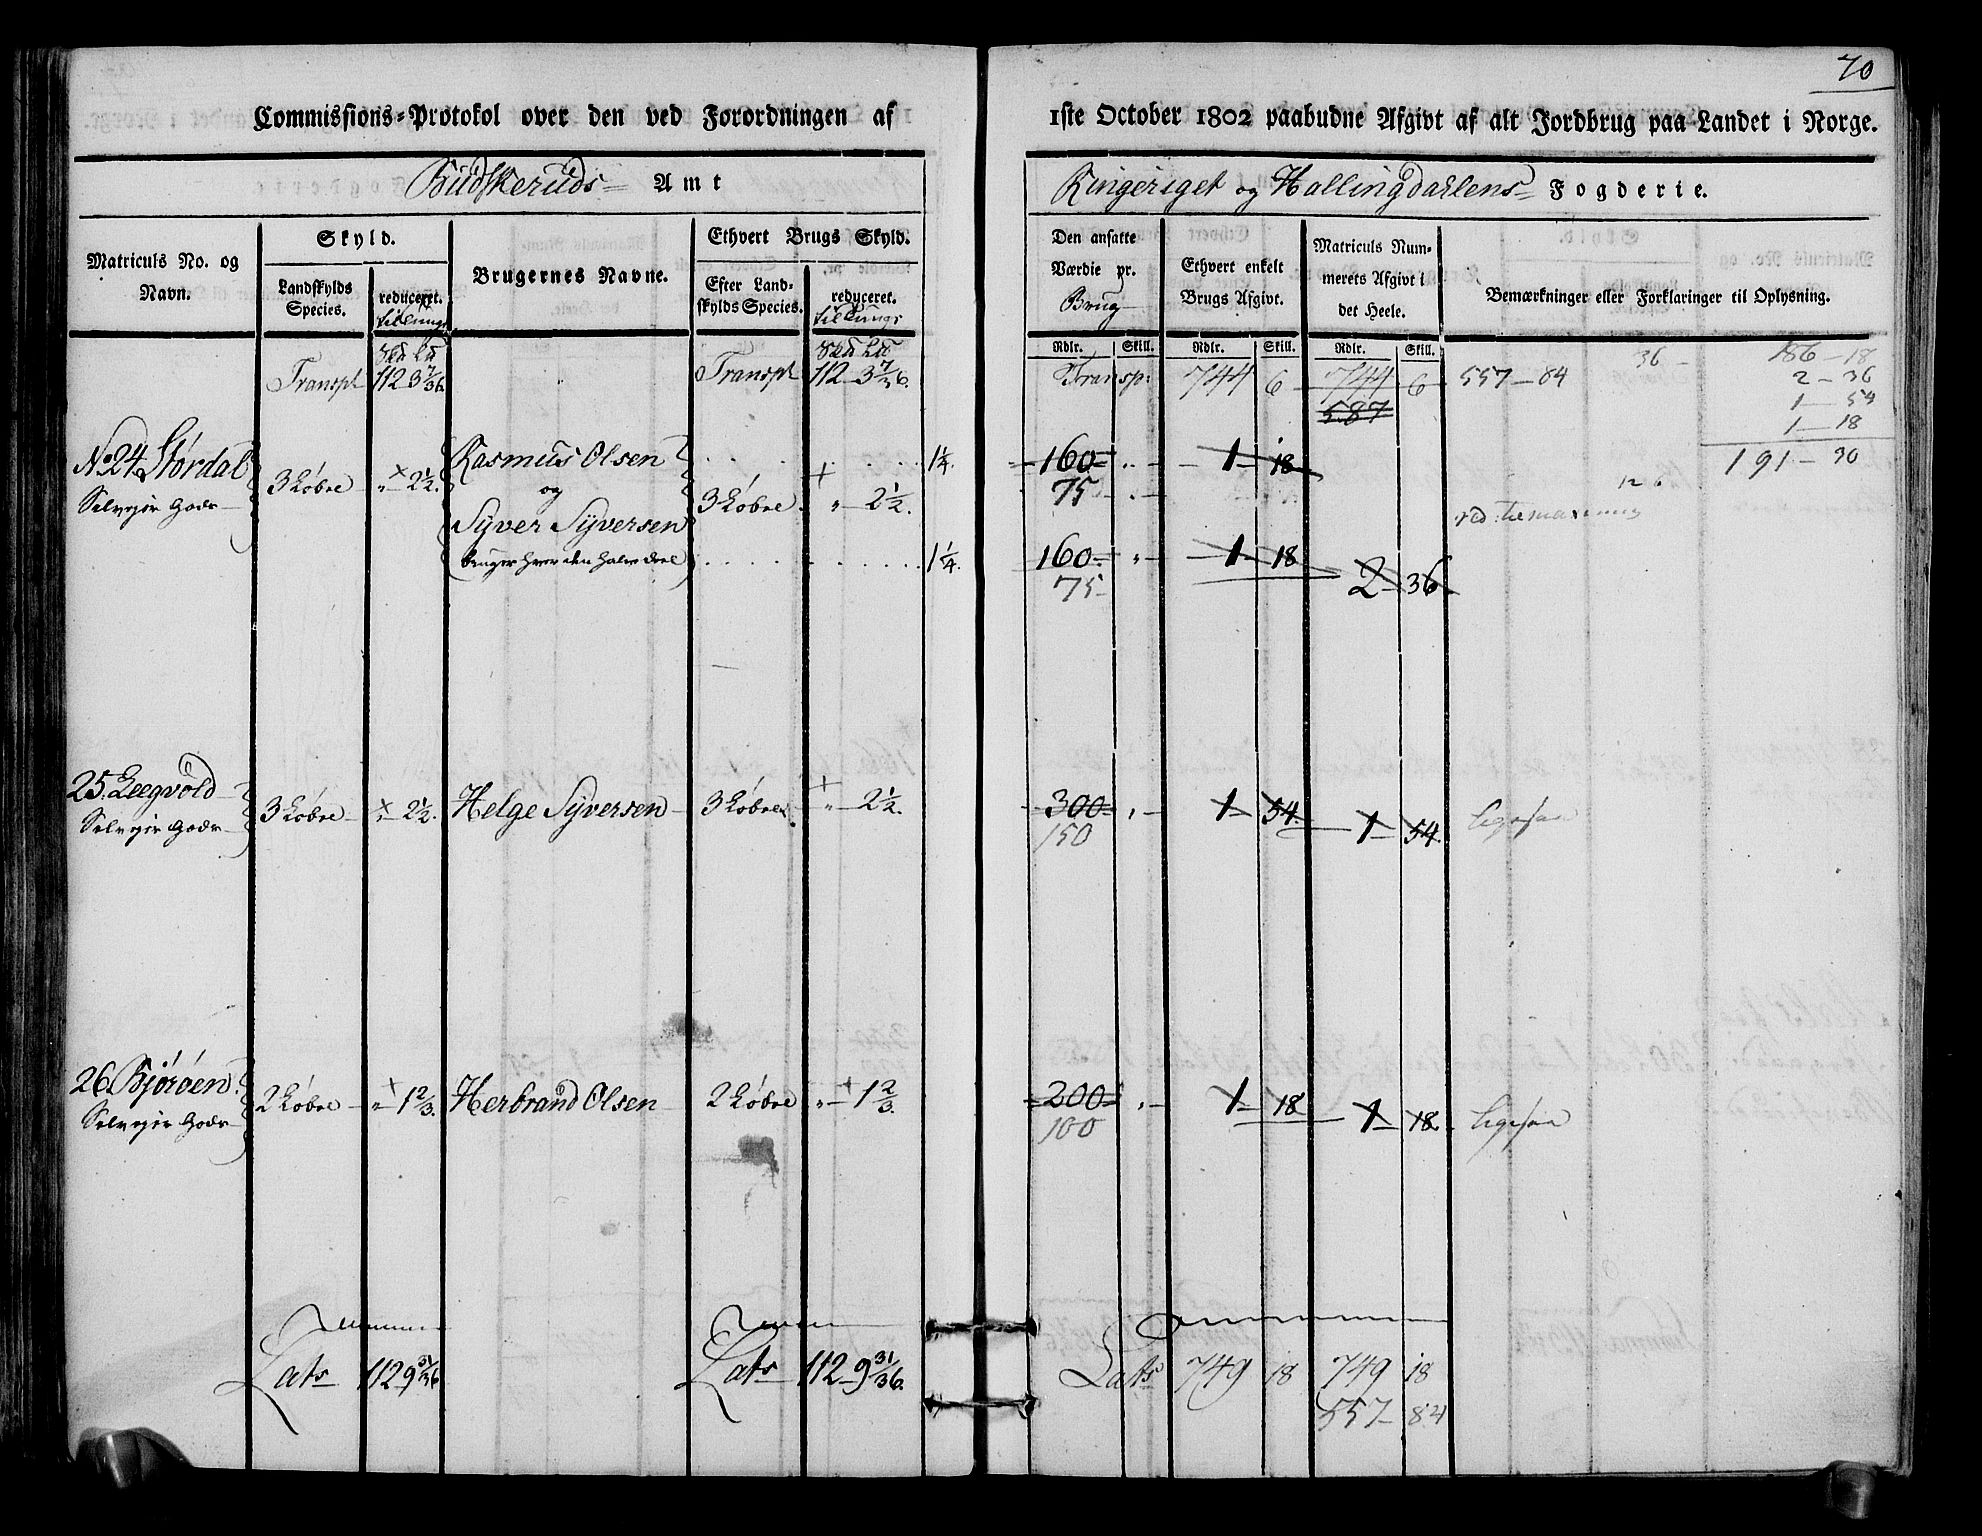 70
Commissions-Protokol over den ved Forordningen af 1ste October 1802 paabudne Afgivt af alt Jordbrug paa Landet i Norge.
Budskeruds Amt
Ringeriget og Hallingdahlens Fogderie.
Matriculs No. og Navn.
Skyld.
Landskylds Species.
reduceret.
Brugernes Navne.
Ethvert Brugs Skyld.
Efter Landskylds Species.
reduceret.
Den ansatte Værdie pr. Brug
Ethvert enkelt Brugs Afgivt.
Matriculs Nummerets Afgivt i det Heele.
Bemærkninger eller Forklaringer til Oplysning.
Rdlr. Skill. Rdlr. Skill. Rdlr. Skill.
Transpt 112 3 7/36. Transpt 112 - 3 7/36. Transp: 744 6 744 6 557 - 84
587
36 -
186 - 18
2 - 36
1 - 54
1 - 18
191 - 30
No 24 Stördal
3 Löbre " - 2 1/2.
Rasmus Olsen 1 1/4. 160 " - 1 - 18
og 3 Löbre " - 2 1/2. 75
126
Syver Syversen
bruger hver den halve deel 1 1/4. 160 " - 1 - 18 2 - 36
75
25. Leegvold
3 Löbre " - 2 1/2. Helge Syversen 3 Löbre " - 2 1/2. 300 " - 1 - 54. 1 - 54. ligesaa
150
26. Björöen
2 Löbre " - 1 2/3. Herbrand Olsen 2 Löbre " - 1 2/3. 200 " - 1 - 18 1 - 18 ligesaa
100
Lats 112 9 31/36 Lats 112 - 9 31/36. Lats 749 18 749 18
557 - 84